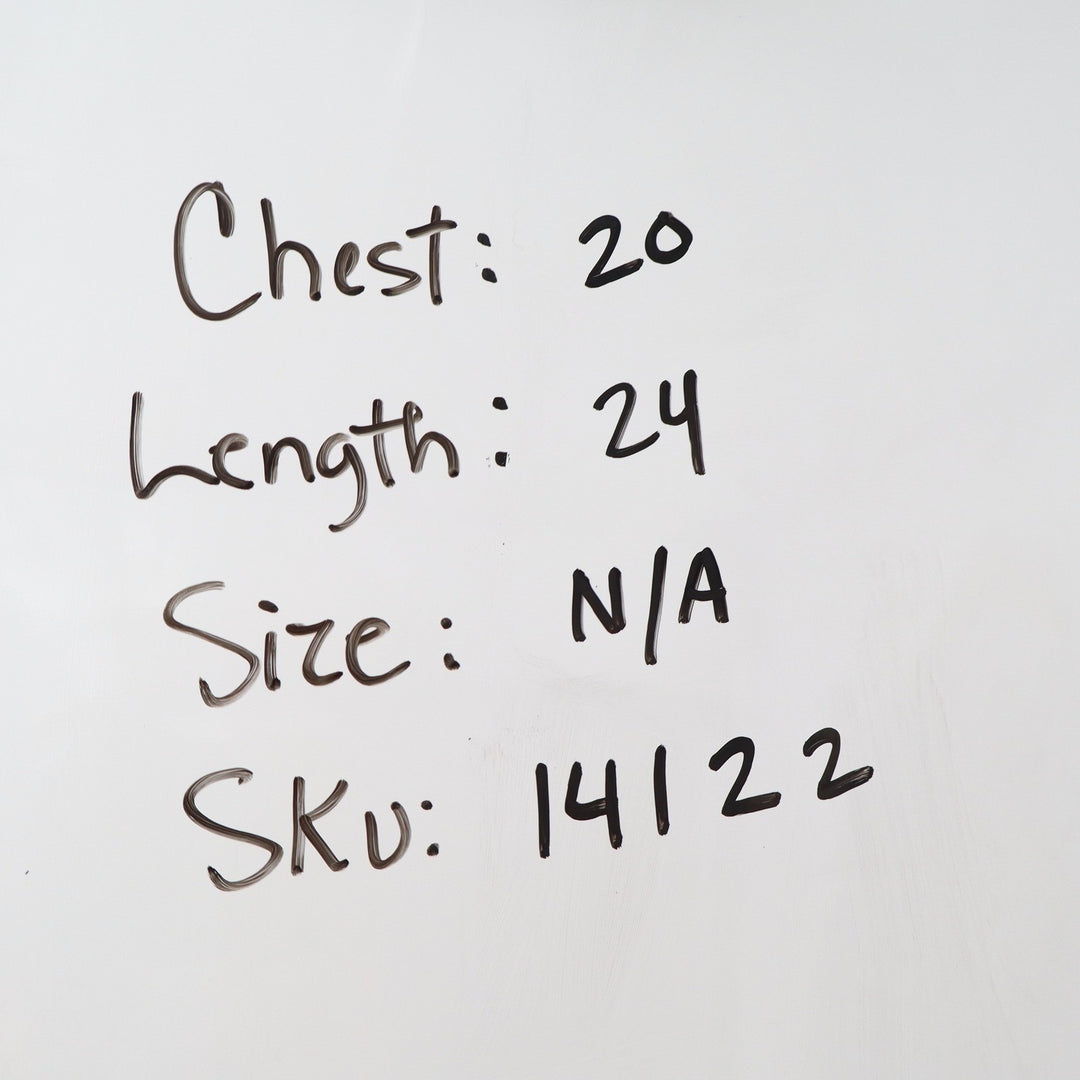 Chest: 20
Length: 24
Size: N/A
SKU: 14122